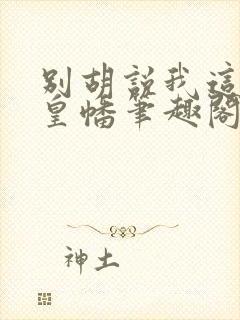 别胡説我這
皇幡筆趣閣
神土